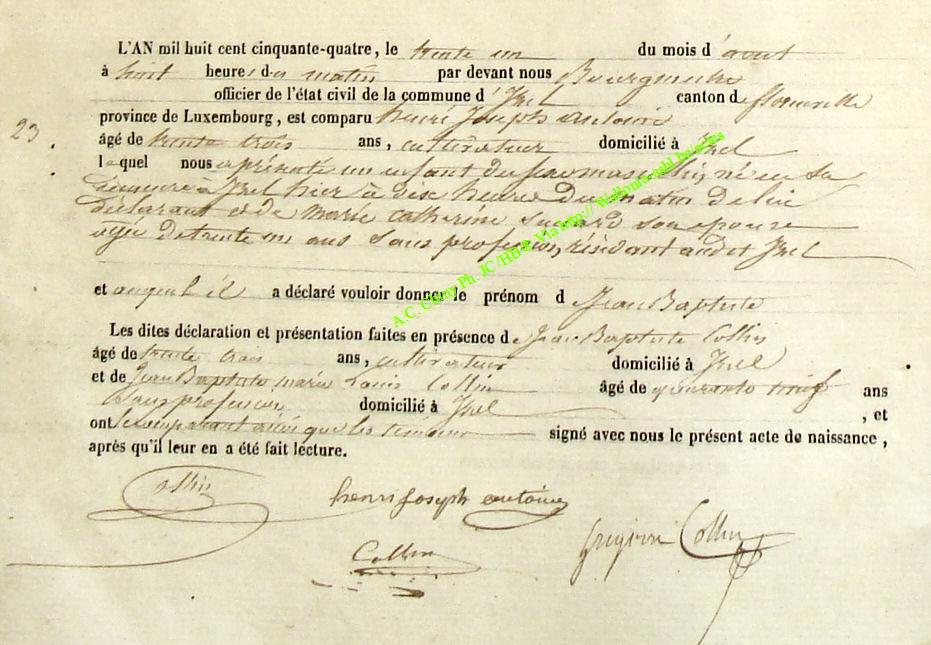 L'AN mil huit cent cinquante-quatre, le trente un du mois d'aout
à huit heures du matin par devant nous Bourgmestre
officier de l'état civil de la commune d'Izel canton de Florenville
23. province de Luxembourg, est comparu henri Joseph antoine
âgé de trente trois ans, cultivateur domicilié à Izel
lequel nous a présenté un enfant du sexe masculin, né en sa
demeure à Izel hier à dix heures du matin de lui
déclarant et de marie catherine son epouse
agée de trente un ans sans profession, résidant audit Izel
et auquel il a déclaré vouloir donner le prénom de Jean Baptiste
Les dites déclaration et présentation faites en présence de Jean Baptiste Collin
âgé de trente trois ans, cultivateur domicilié à Izel
et de Jean Baptiste marie Louis Collin âgé de quarante neuf ans
sans profession domicilié à Izel , et
ont le comparant ainsi que les témoins signé avec nous le présent acte de naissance,
après qu'il leur en a été fait lecture.
Collin henri Joseph antoine
Collin Collin